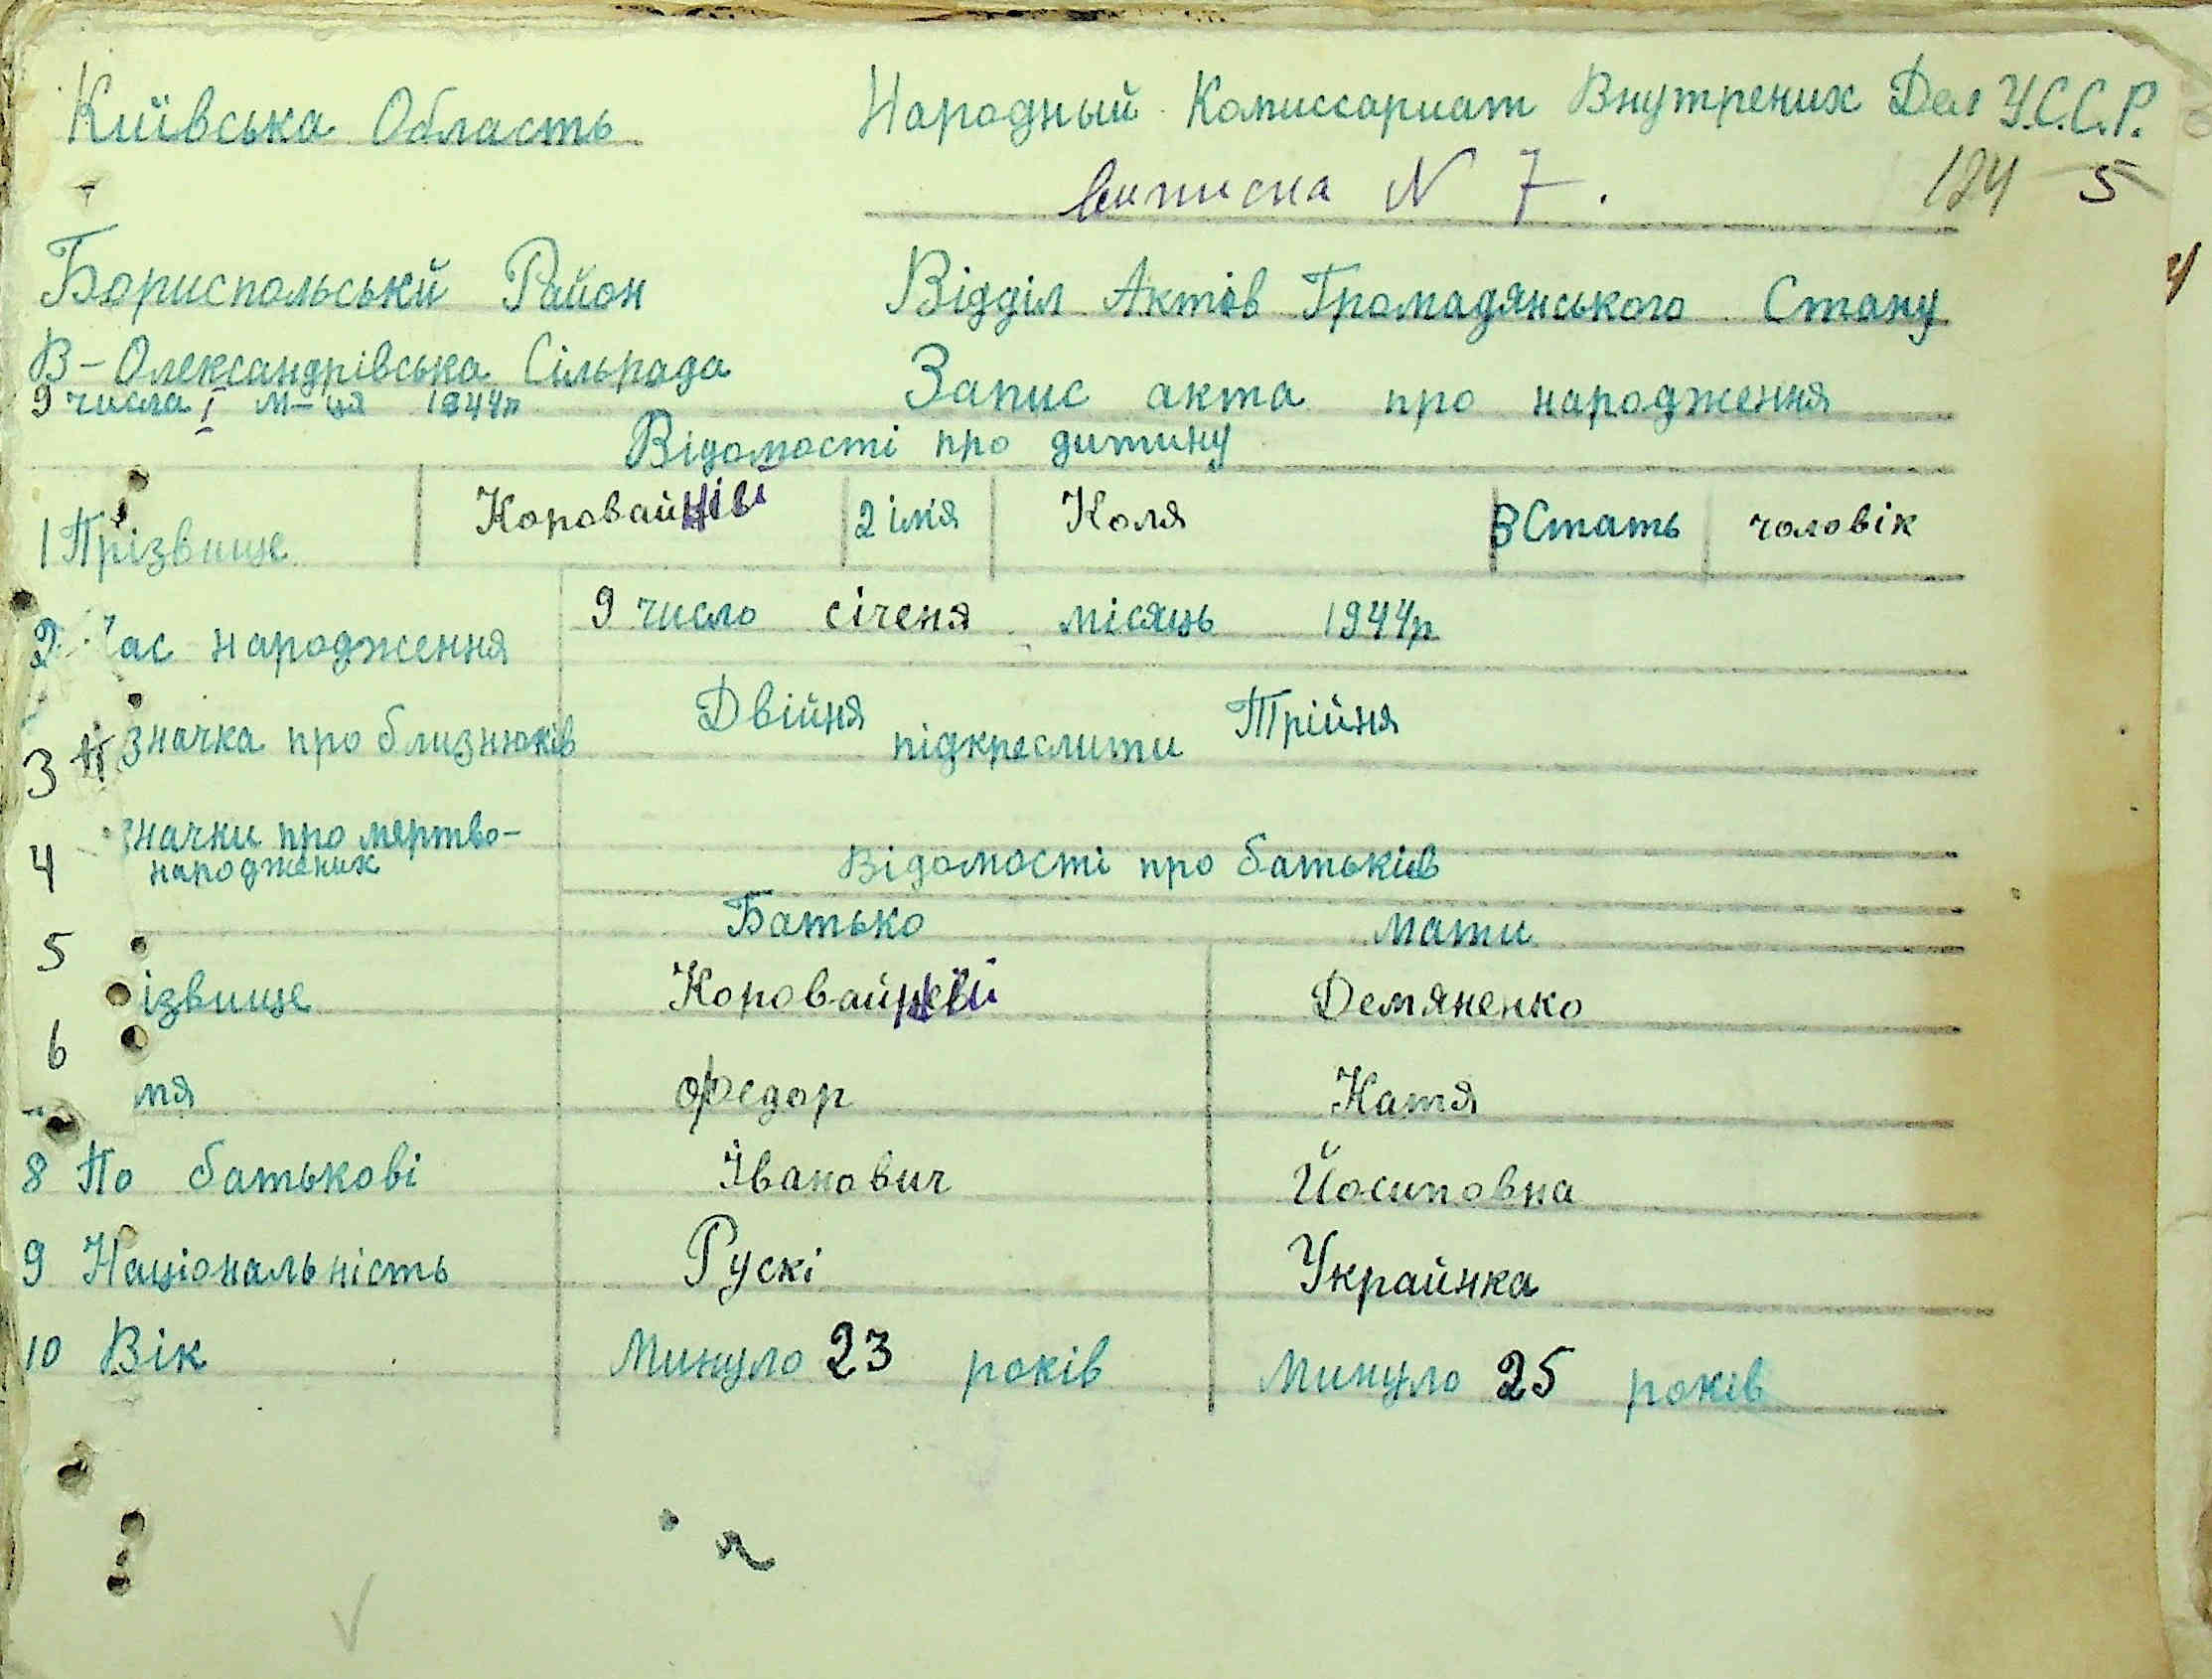 Київська Область Народный Комиссариат Внутрених Дел У.С.С.Р.
Виписка N 7. 124 5
Бориспольський Район Відділ Актів Громадянського Стану
В-Олександрівська Сільрада Запис акта про народження
9 числа I м-ця 1944р
Відомості про дитину
1 Прізвище 2 імя Коля 3 Стать чоловік
2 Час народження 9 число січеня місяць 1944р
3 значка про близнюків Двійня підкреслити Трійня
4 значки про мертво-
народжених Відомості про батьків
5 Батько мати
6 ізвище Демяненко
мя Федор Катя
8 По батькові Іванович Йосиповна
9 Національність Рускі Украйнка
10 Вік Минуло 23 років Минуло 25 років